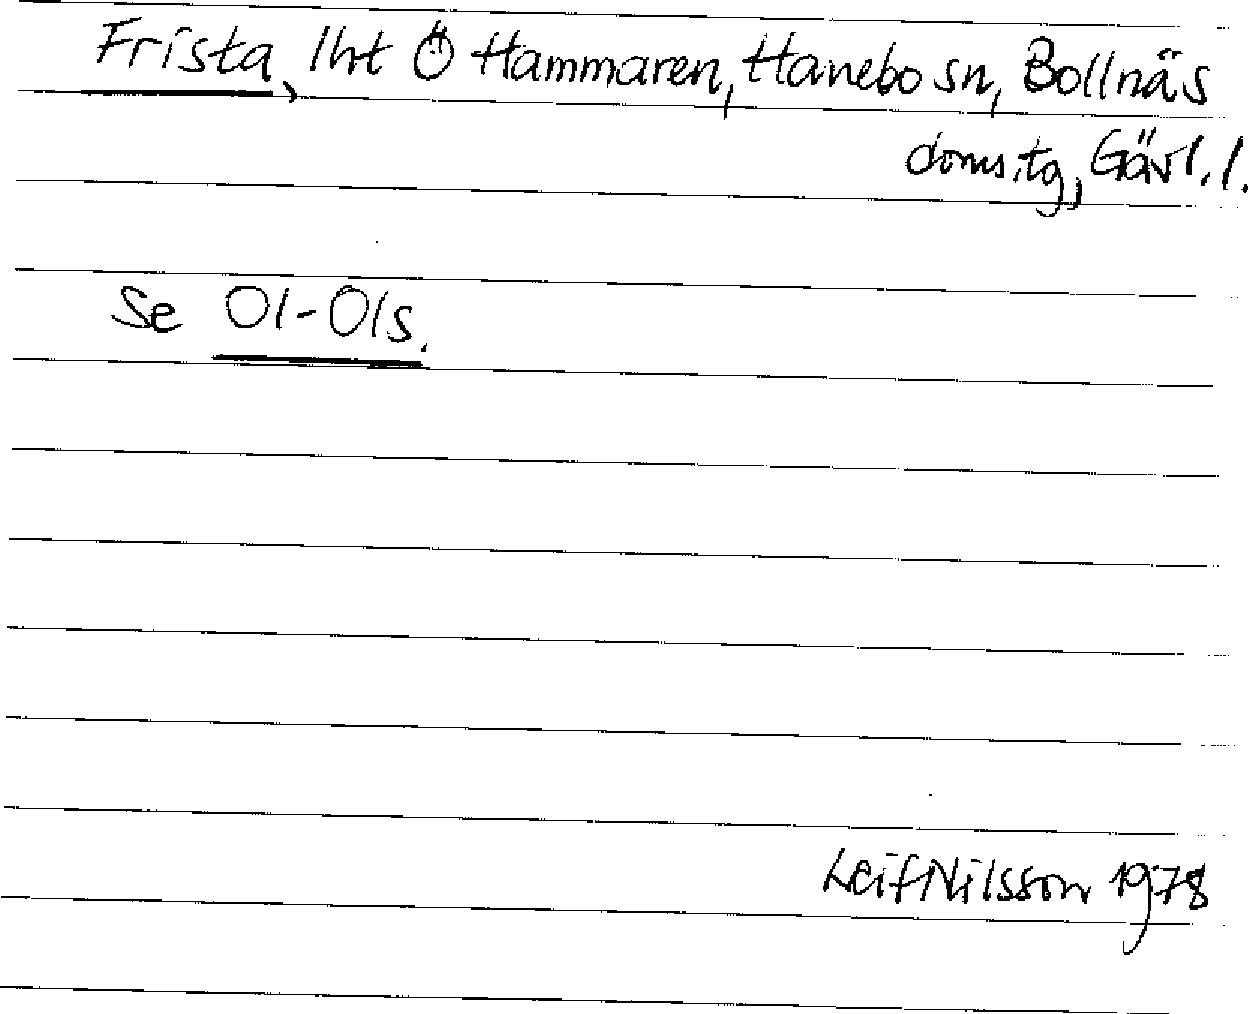 Frista, lht Ö Hammaren, Hanebo sn, Bollnäs
doms.tg, Gävl.l.
Se Ol-Ols.
Leif Nilsson 1978